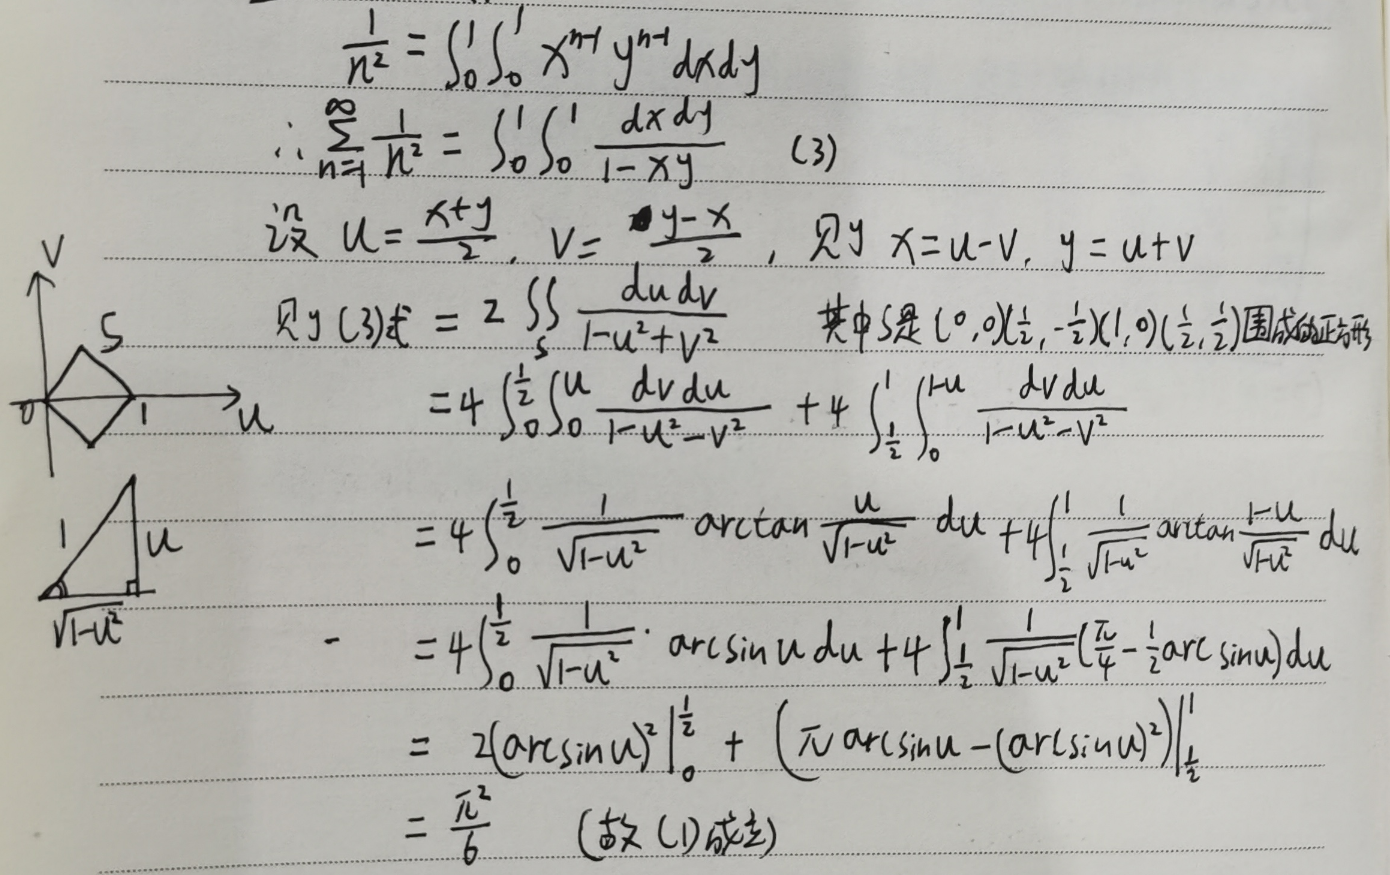 1/n² = ∫₀¹∫₀¹ xⁿ⁻¹ yⁿ⁻¹ dxdy
∴ ∑_{n=1}^{∞} 1/n² = ∫₀¹∫₀¹ dxdy/(1-xy) (3)
设 u = (x+y)/2, v = (y-x)/2, 则 x=u-v, y=u+v
则(3)式 = 2∬_S dudv/(1-u²+v²) 其中S是(0,0)(1/2,-1/2)(1,0)(1/2,1/2)围成的正方形
= 4∫_0^{1/2}∫_0^u dvdu/(1-u²-v²) + 4∫_{1/2}^1∫_0^{1-u} dvdu/(1-u²-v²)
= 4∫_0^{1/2} 1/√(1-u²) arctan u/√(1-u²) du + 4∫_{1/2}^1 1/√(1-u²) arctan (1-u)/√(1-u²) du
= 4∫_0^{1/2} 1/√(1-u²) · arcsin u du + 4∫_{1/2}^1 1/√(1-u²) (π/4 - 1/2 arc sinu) du
= 2(arcsinu)² |_0^{1/2} + (π arcsinu - (arcsinu)²) |_{1/2}^1
= π²/6 (故(1)成立)
V
S
0 1 u
1 u
√(1-u²)